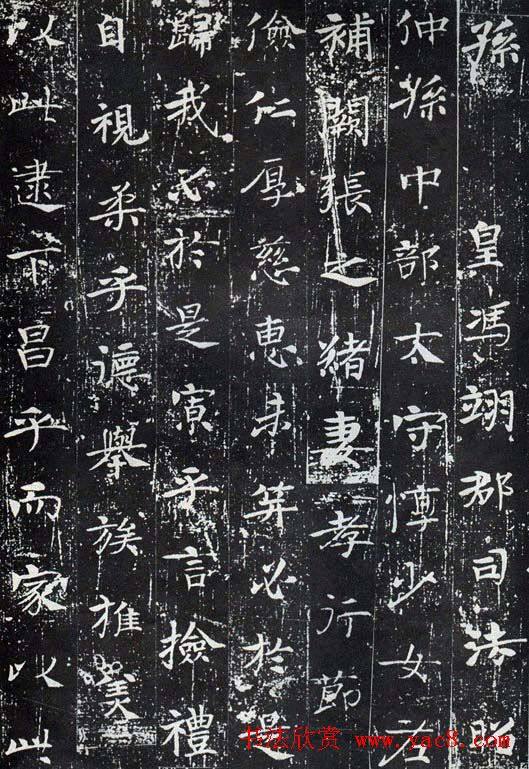 孫 皇馮翊郡司法
仲孫中部太守慱少女
補闕張之緒妻孝行節
儉仁厚慈惠未笄必於是
歸我亦於是寡乎言撿禮
自視柔乎德舉族推美
以此逮下昌乎而家以此
书法欣赏 www.yac8.com